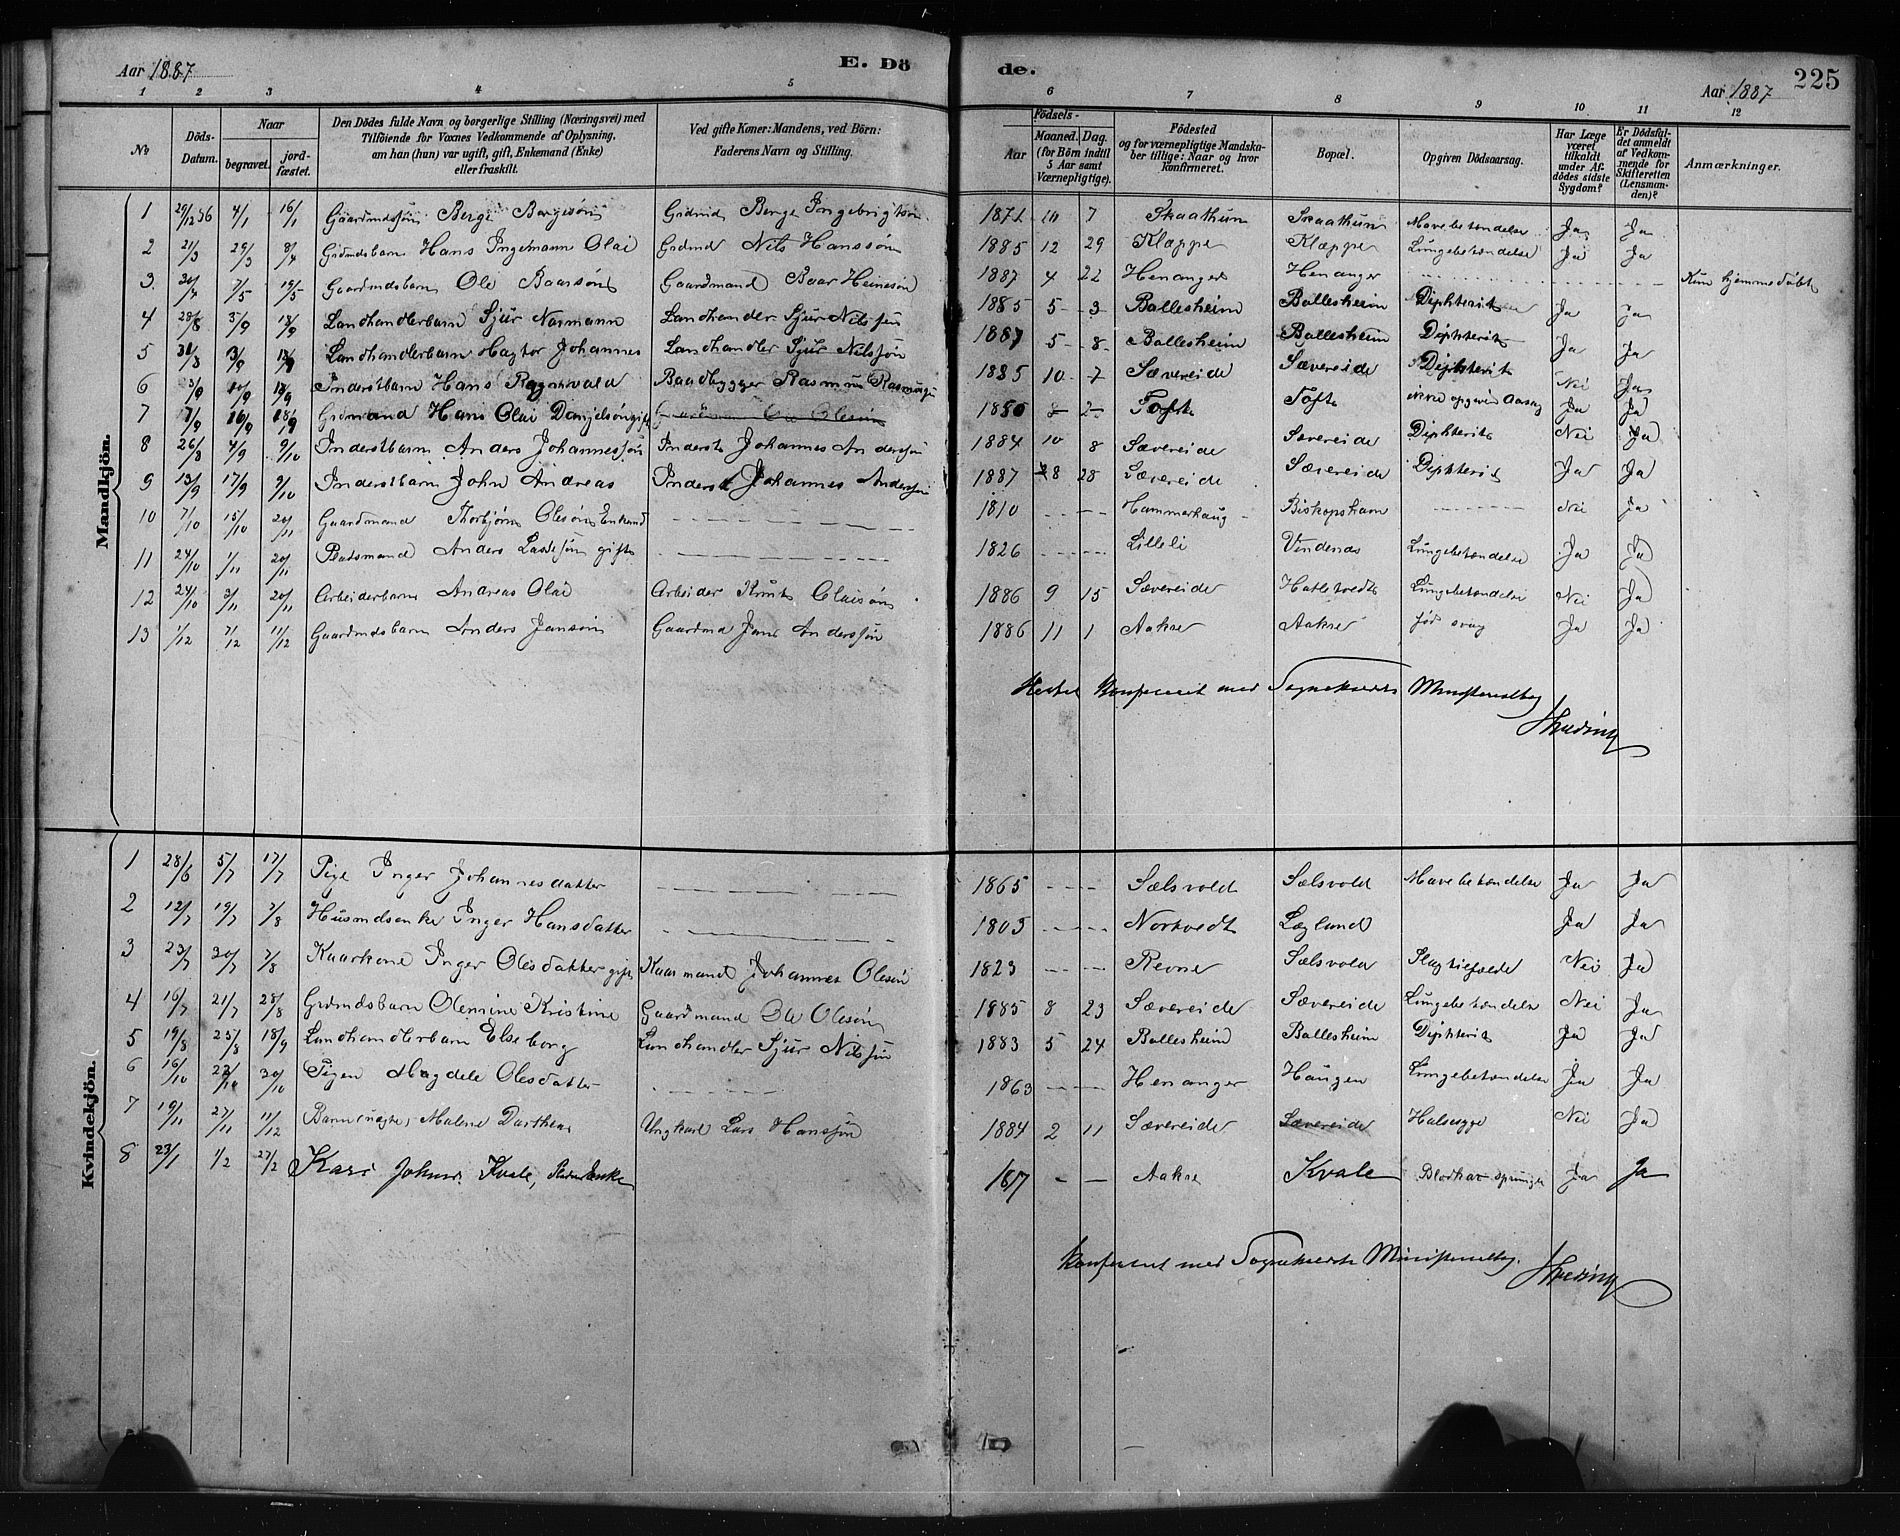 Aar 1887 E. Dö de. Aar 1887 225
1 2 3 4 5 6 7 8 9 10 11 12
No. Döds-Datum. Naar begravet. jordfæstet. Den Dödes fulde Navn og borgerlige Stilling (Næringsvei) med Tilföiende for Voxnes Vedkommende af Oplysning, om han (hun) var ugift, gift, Enkemand (Enke) eller fraskilt. Ved gifte Koner: Mandens, ved Börn: Faderens Navn og Stilling. Födsels- Aar Maaned. Dag. (for Börn indtil 5 Aar samt Værnepligtige). Födested og for værnepligtige Mandskaber tillige: Naar og hvor konfirmeret. Bopæl. Opgiven Dödsaarsag. Har Læge været tilkaldt under Afdödes sidste Sygdom? Er Dödsfaldet anmeldt af Vedkommende for Skifteretten (Lensmanden)? Anmærkninger.
Mandkjön.
1 29/12 86 4/1 16/1 Gaardmdssön Berge Bergesön Grdmd Berge Ingebrigtsön 1871 10 7 Skaathun Skaathun Mavebetændelse Ja Ja
2 21/3 29/3 8/4 Grdmdsbarn Hans Ingemann Olai Grdmd Nils Hanssön 1885 12 29 Klæppe Klæppe Lungebetændelse Ja Ja
3. 30/4 7/5 19/5 Gaardmdsbarn Ole Baarsön Gaardmand Baar Heinesön 1887 4 22 Henanger Henanger Kun hjemmedøbt
4 28/8 3/9 18/9 Landhandlerbarn Sjur Normann Landhandler Sjur Nilssön 1885 5 3 Ballesheim Ballesheim Diphterit Ja Ja
5 31/8 13/9 18/9 Landhandlerbarn Hagtor Johannes Landhandler Sjur Nilssön 1887 5 8 Ballesheim Ballesheim Diphterit Ja Ja
6 3/9 10/9 18/9 Inderstbarn Hans Ragnvald Baadbygger Rasmus Rasmussen 1885 10 7 Sævereide Sævereide Diphterit Nei Ja
7 7/9 16/9 18/9 Grdmand Hans Olai Danjelsön gift 1850 8 2 Tofte Tofte ikke opgiven Aarsag Ja Ja
8 26/8 4/9 9/10 Inderstbarn Anders Johannessön Inderst Johannes Anderssön 1884 10 8 Sævereide Sævereide Diphterit Nei Ja
9 13/9 17/9 9/10 Inderstbarn John Andreas Inderst Johannes Anderssön 1887 8 28 Sævereide Sævereide Diphterit Ja Ja
10 7/10 15/10 20/11 Gaardmand Thorbjörn Olesön Enkemd 1810 Hammerhaug Biskopshavn Nei Ja
11 24/10 1/11 20/11 Baadsmand Anders Lassesön gift 1826 Lilleli Vindenes Lungebetændelse Ja Ja
12 24/10 3/11 20/11 Arbeiderbarn Andreas Olai Arbeider Knut Olaisön 1886 9 15 Sævereide Hatletvedt Lungebetændelse Nei Ja
13 1/12 7/12 11/12 Gaardmdsbarn Anders Jansön Gaardmd Jans Anderssön 1886 11 1 Aakre Aakre fød svag Ja Ja
Heftet konfereret med Sognekaldets Ministerialbog
Kvindekjön.
1 28/6 5/7 17/7 Pige Inger Johannesdatter 1865 Sælsvold Sælsvold Mavebetændelse Ja Ja
2 12/7 19/7 7/8 Husmdsenke Inger Hansdatter 1803 Nortvedt Læglund Ja Ja
3 23/7 30/7 7/8 Kaarkone Inger Olesdatter gift Kaarmand Johannes Olesön 1823 Revne Sælsvold Slagtilfælde Nei Ja
4 16/7 21/7 28/8 Grdmndsbarn Olemine Kristine Gaardmand Ole Olesön 1885 8 23 Sævereide Sævereide Lungebetændelse Nei Ja
5 19/8 25/8 18/9 Landhandlerbarn Elseborg Landhandler Sjur Nilssön 1883 5 24 Ballesheim Ballesheim Diphterit Ja Ja
6 16/10 23/10 30/10 Pigen Magdele Olesdatter 1863 Henanger Haugen Lungebetændelse Ja Ja
7 19/11 27/11 11/12 Barn (uægte) Malene Dorthea Ungkarl Lars Hanssön 1884 2 11 Sævereide Sævereide Halssyge Nei Ja
8 23/1 1/2 27/2 Kari Johns. Kvale, Enke Aakre Kvale Ja Ja
Konfereret med Sognekaldets Ministerialbog.